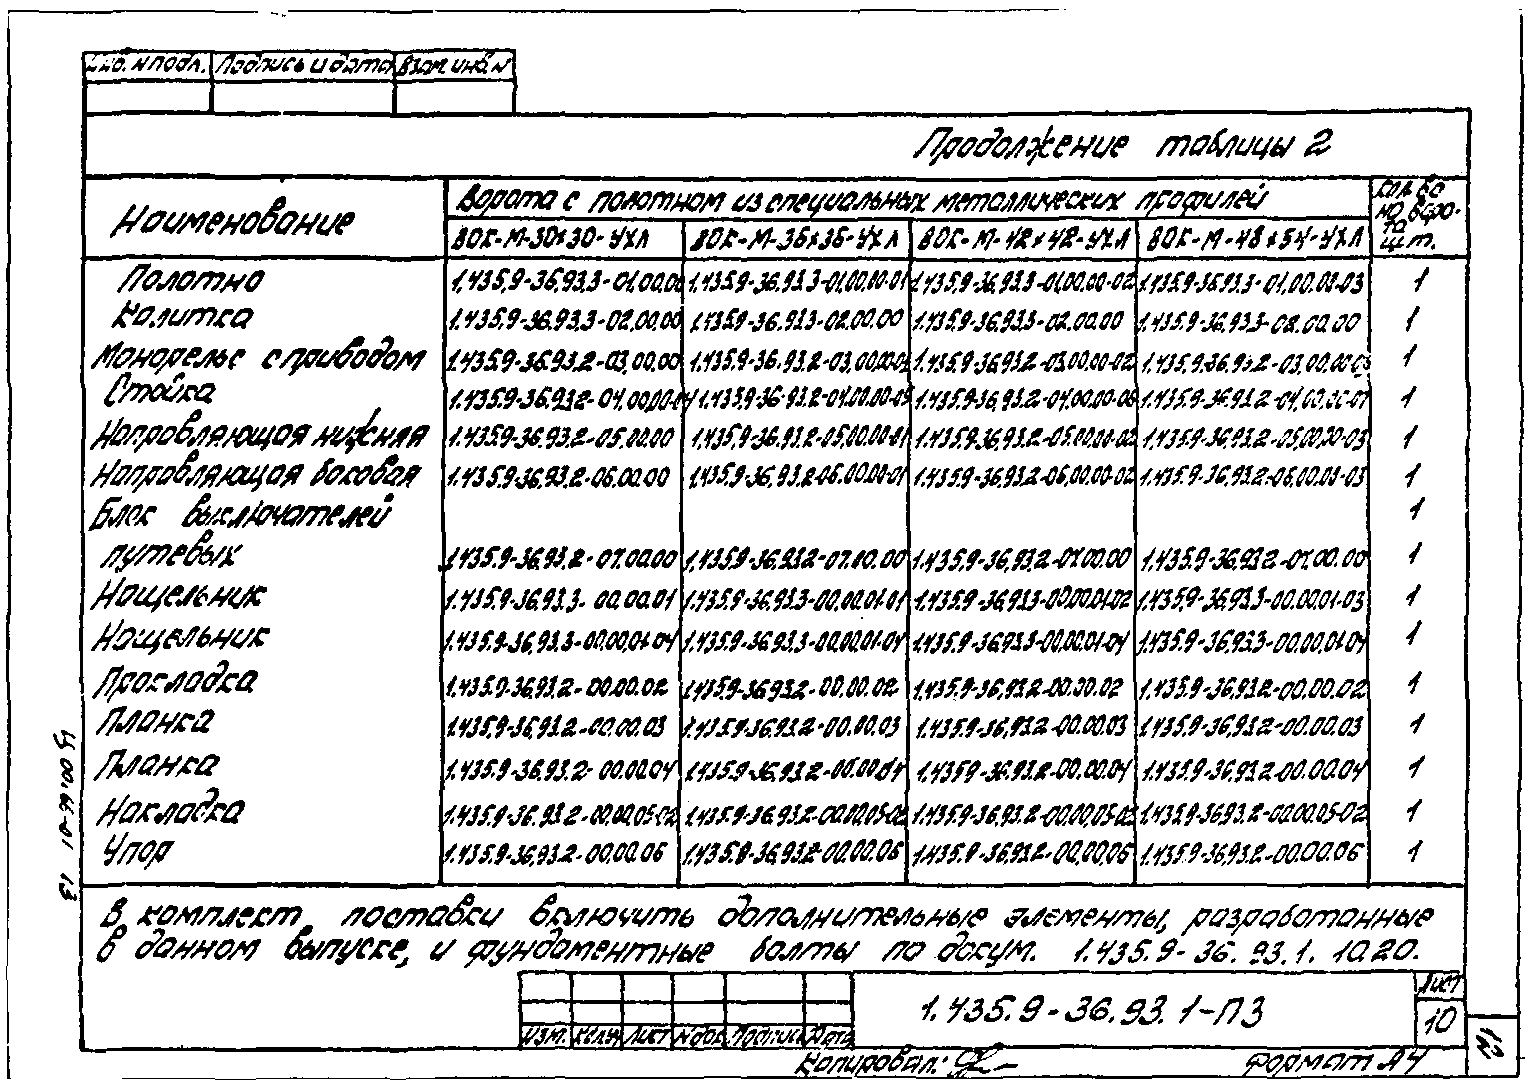 Инв. N подл. Подпись и дата Взам. инв. N
Продолжение таблицы 2
Наименование
Ворота с полотном из специальных металлических профилей
Кол-во на воро-та шт.
ВОК-М-30х30-УХЛ ВОК-М-36х36-УХЛ ВОК-М-42х42-УХЛ ВОК-М-48х54-УХЛ
Полотно 1.435.9-36.93.3-01.00.00 1.435.9-36.93.3-01.00.00-01 1.435.9-36.93.3-01.00.00-02 1.435.9-36.93.3-01.00.00-03 1
Калитка 1.435.9-36.93.3-02.00.00 1.435.9-36.93.3-02.00.00 1.435.9-36.93.3-02.00.00 1.435.9-36.93.3-02.00.00 1
Монорельс с приводом 1.435.9-36.93.2-03.00.00 1.435.9-36.93.2-03.00.00-01 1.435.9-36.93.2-03.00.00-02 1.435.9-36.93.2-03.00.00-03 1
Стойка 1.435.9-36.93.2-04.00.00-04 1.435.9-36.93.2-04.00.00-05 1.435.9-36.93.2-04.00.00-06 1.435.9-36.93.2-04.00.00-07 1
Направляющая нижняя 1.435.9-36.93.2-05.00.00 1.435.9-36.93.2-05.00.00-01 1.435.9-36.93.2-05.00.00-02 1.435.9-36.93.2-05.00.00-03 1
Направляющая боковая 1.435.9-36.93.2-06.00.00 1.435.9-36.93.2-06.00.00-01 1.435.9-36.93.2-06.00.00-02 1.435.9-36.93.2-06.00.00-03 1
Блок выключателей 1
путевых 1.435.9-36.93.2-07.00.00 1.435.9-36.93.2-07.00.00 1.435.9-36.93.2-07.00.00 1.435.9-36.93.2-07.00.00 1
Нащельник 1.435.9-36.93.3-00.00.01 1.435.9-36.93.3-00.00.01-01 1.435.9-36.93.3-00.00.01-02 1.435.9-36.93.3-00.00.01-03 1
Нащельник 1.435.9-36.93.3-00.00.01-04 1.435.9-36.93.3-00.00.01-04 1.435.9-36.93.3-00.00.01-04 1.435.9-36.93.3-00.00.01-04 1
Прокладка 1.435.9-36.93.2-00.00.02 1.435.9-36.93.2-00.00.02 1.435.9-36.93.2-00.00.02 1.435.9-36.93.2-00.00.02 1
Планка 1.435.9-36.93.2-00.00.03 1.435.9-36.93.2-00.00.03 1.435.9-36.93.2-00.00.03 1.435.9-36.93.2-00.00.03 1
Планка 1.435.9-36.93.2-00.00.04 1.435.9-36.93.2-00.00.04 1.435.9-36.93.2-00.00.04 1.435.9-36.93.2-00.00.04 1
Накладка 1.435.9-36.93.2-00.00.05-02 1.435.9-36.93.2-00.00.05-02 1.435.9-36.93.2-00.00.05-02 1.435.9-36.93.2-00.00.05-02 1
Упор 1.435.9-36.93.2-00.00.06 1.435.9-36.93.2-00.00.06 1.435.9-36.93.2-00.00.06 1.435.9-36.93.2-00.00.06 1
В комплект поставки включить дополнительные элементы, разработанные
в данном выпуске, и фундаментные болты по докум. 1.435.9-36.93.1.10.20.
Изм. Кол.уч Лист N док Подпись Дата
1.435.9-36.93.1-ПЗ
Лист
10
Копировал:
Формат А4
12
13